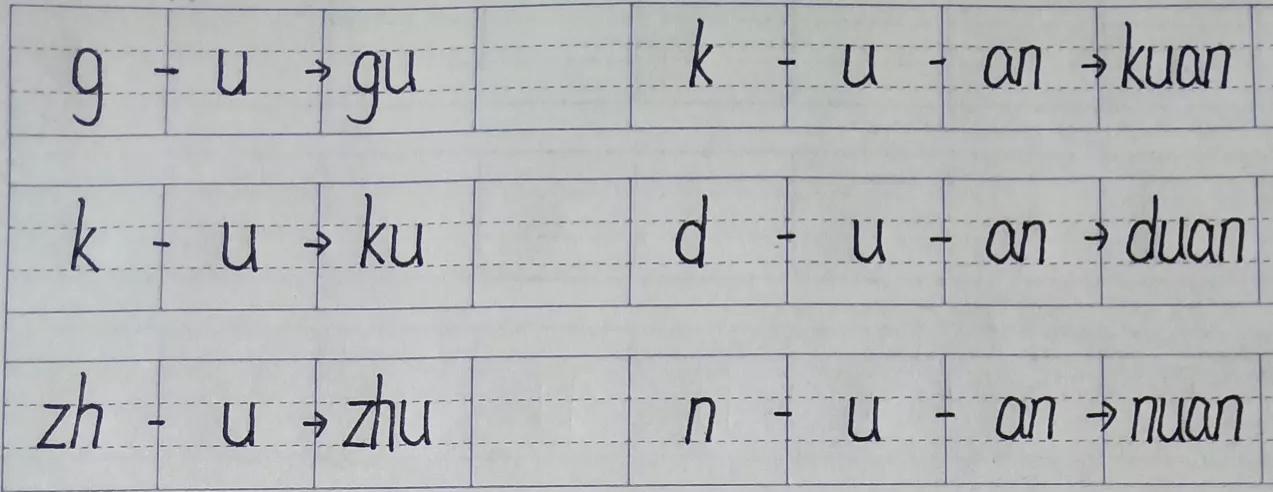 g - u → gu k - u - an → kuan
k - u → ku d - u - an → duan
zh - u → zhu n - u - an → nuan